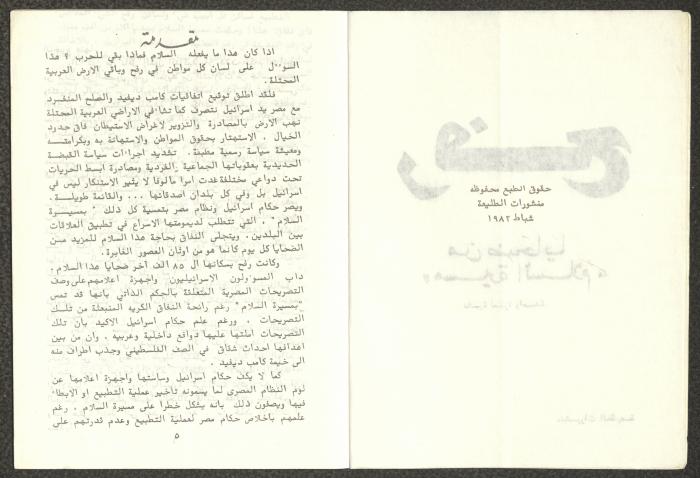 حقوق الطبع محفوظه
منشورات الطليعة
شباط ١٩٨٢
رفح
من ضحايا
مسيرة السلام
مقدمة
اذا كان هذا ما يفعله السلام فماذا بقي للحرب ؟ هذا
السوءال على لسان كل مواطن في رفح وباقي الارض العربية
المحتلة .
فلقد اطلق توقيع اتفاقيات كامب ديفيد والصلح المنفرد
مع مصر يد اسرائيل تتصرف كما تشاء في الاراضي العربية المحتلة
نهب الارض بالمصادرة والتزوير لاغراض الاستيطان فاق حدود
الخيال . الاستهتار بحقوق المواطن والاستهانة به وبكرامته
ومعيشة سياسة رسمية مطبقة . تشديد اجراءات سياسة القبضة
الحديدية بعقوباتها الجماعية الفردية ومصادرة ابسط الحريات
تحت دواعي مختلفة غدت امرا مألوفا لا يثير الاستنكار ليس في
اسرائيل بل وفي كل بلدان اصدقائها ... والقائمة طويلة .
ويصر حكام اسرائيل ونظام مصر بتسمية كل ذلك " بمسيرة
السلام " . التي تتطلب لديمومتها الاسراع في تطبيق العلاقات
بين البلدين . ويتجلى النفاق بحاجة هذا السلام للمزيد من
الضحايا كل يوم كأنما هو من اوثان العصور الغابرة .
وكانت رفح بسكانها ال ٨٥ الف آخر ضحايا هذا السلام .
داب المسوءولون الاسرائيليون واجهزة اعلامهم على وصف
التصريحات المصرية المتعلقة بالحكم الذاتي بانها قد تمس
"بمسيرة السلام " رغم رائحة النفاق الكريه المنبعثة من تلك
التصريحات . ورغم علم حكام اسرائيل الاكيد بان تلك
التصريحات املتها عليها دوافع داخلية وعربيه . وان من بين
اهدافها احداث شقاق في الصف الفلسطيني وجذب اطراف منه
الى خيمة كامب ديفيد .
كما لا يكف حكام اسرائيل وساستها واجهزة اعلامها عن
لوم النظام المصري لما يسمونه تأخير عملية التطبيع او الابطاء
فيها ويصفون ذلك بانه يشكل خطرا على مسيرة السلام . رغم
علمهم باخلاص حكام مصر لعملية التطبيع وعدم قدرتهم على
٥